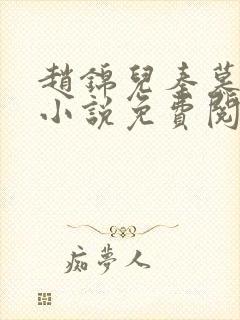 趙錦兒秦慕
小說免費閱
痴夢人